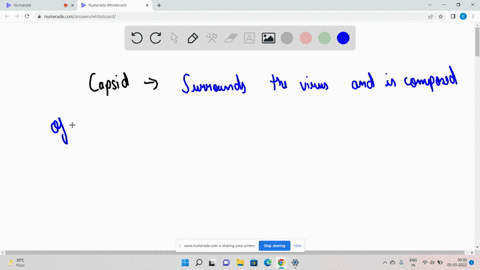 Numerade
Numerade Whiteboard
numerade.com/answers/whiteboard/
Capsid → Surrounds the virus and is composed
of
www.numerade.com is sharing your screen.
Stop sharing
Hide
30°C
Haze
ENG
IN